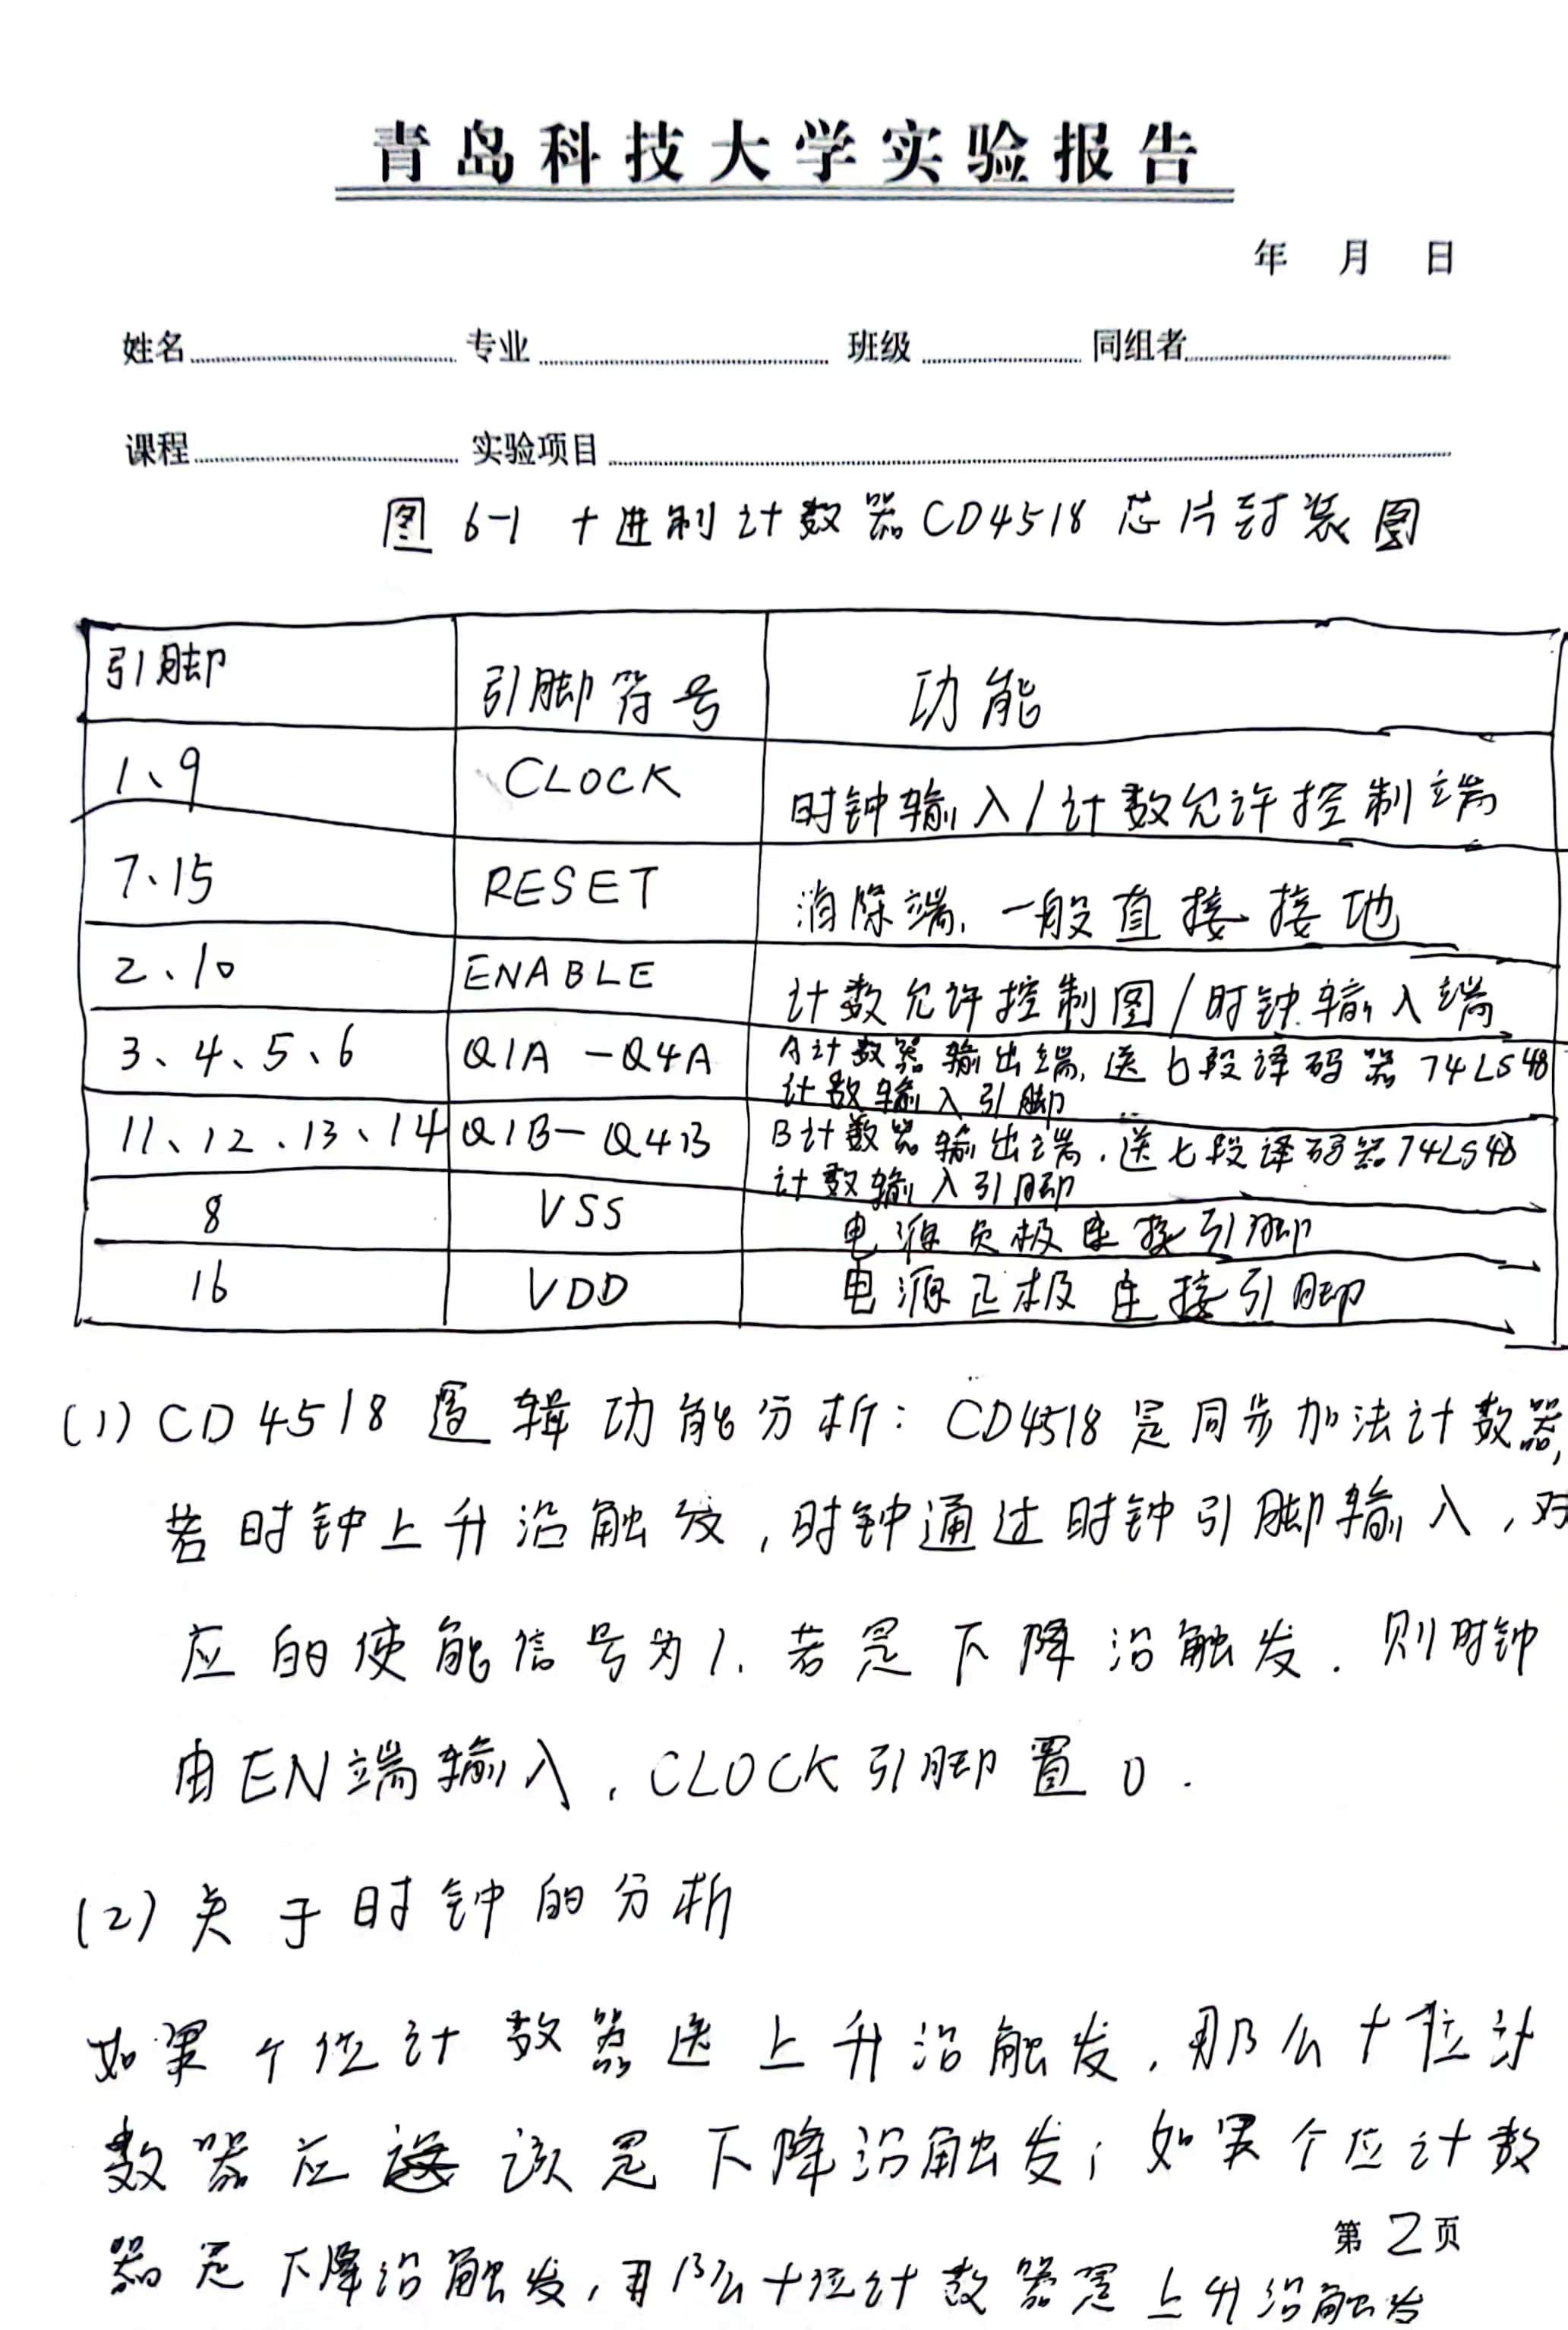 青岛科技大学实验报告
年 月 日
姓名 专业 班级 同组者
课程 实验项目
图 6-1 十进制计数器CD4518 芯片封装图
引脚 引脚符号 功能
1、9 CLOCK 时钟输入/计数允许控制端
7、15 RESET 消除端,一般直接接地
2、10 ENABLE 计数允许控制图/时钟输入端
3、4、5、6 Q1A-Q4A A计数器输出端,送七段译码器74LS48
计数输入引脚
11、12、13、14 Q1B-Q4B B计数器输出端,送七段译码器74LS48
计数输入引脚
8 VSS 电源负极连接引脚
16 VDD 电源正极连接引脚
(1) CD4518逻辑功能分析:CD4518是同步加法计数器,
若时钟上升沿触发,时钟通过时钟引脚输入,对
应的使能信号为1.若是下降沿触发.则时钟
由EN端输入,CLOCK引脚置0.
(2)关于时钟的分析
如果个位计数器送上升沿触发,那么十位计
数器应该是下降沿触发;如果个位计数
器是下降沿触发,那么十位计数器是上升沿触发
第2页